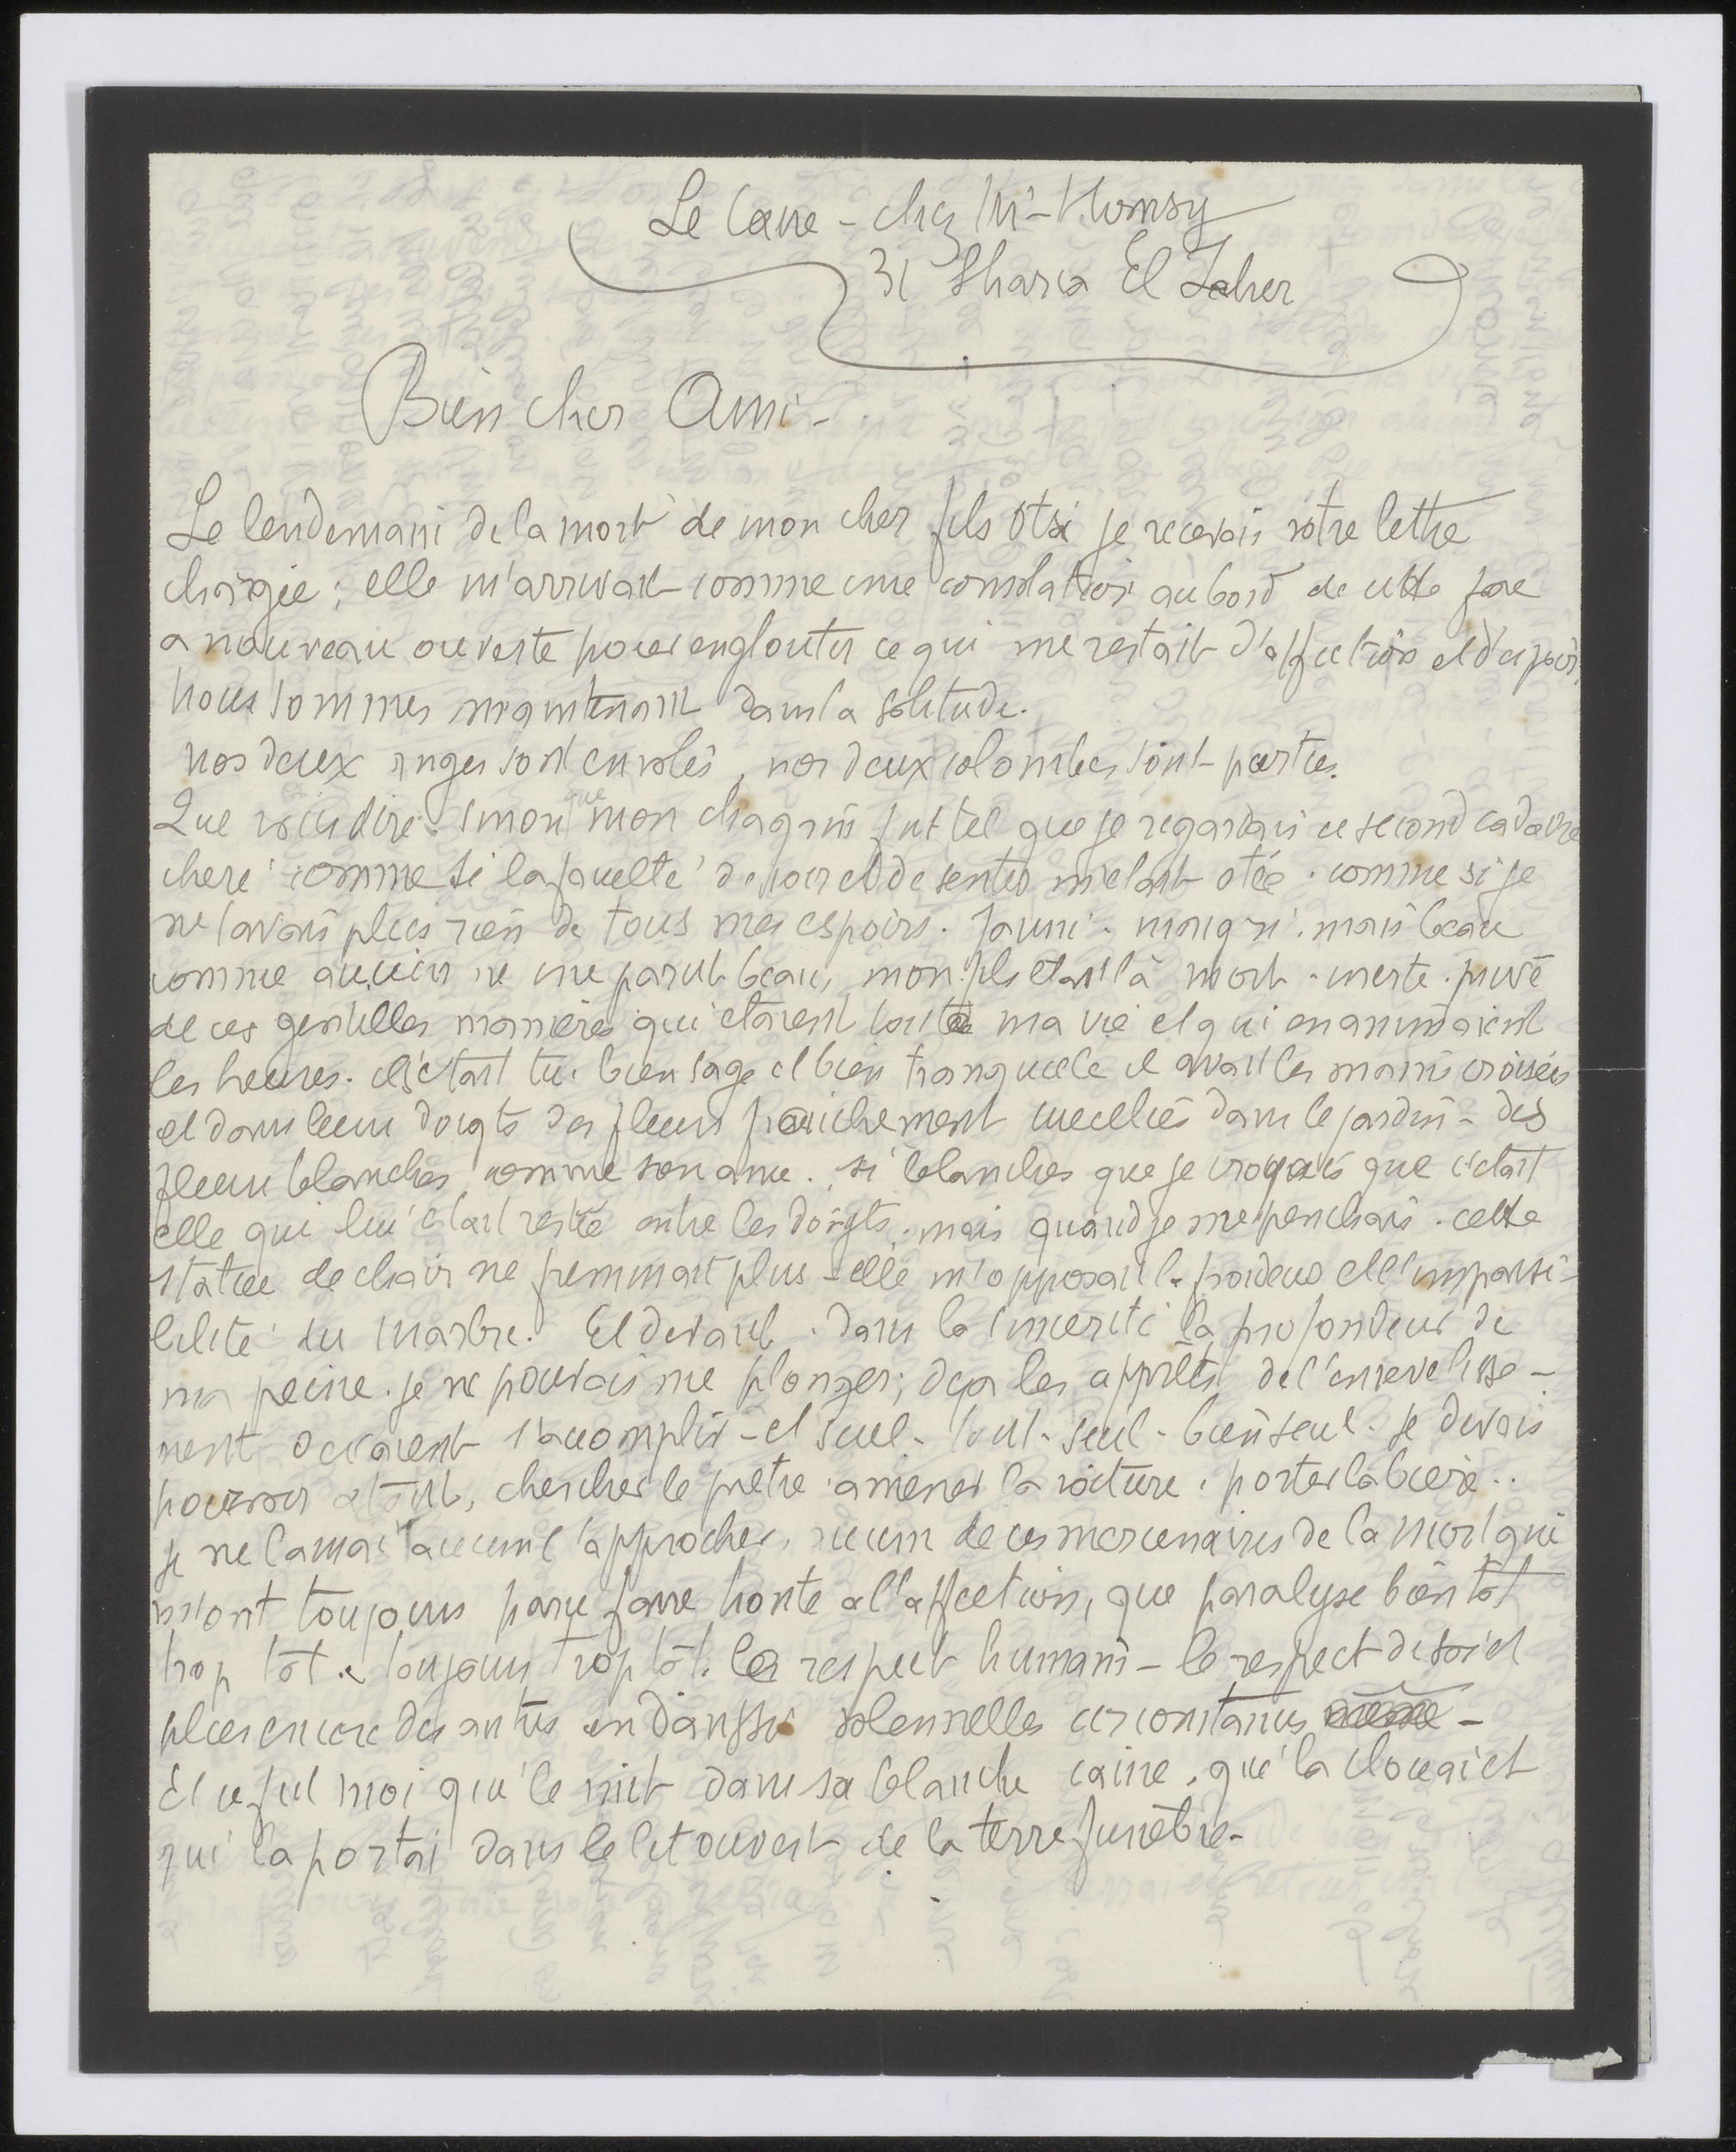 Le Caire - chez Mr - Homsy
31 Sharia El Zaher
Bien cher Ami -
Le lendemain de la mort de mon cher fils Otsi je recevais votre lettre
chargée ; elle m'arrivait comme une consolation au bord de cette fosse
a nouveau ouverte pour engloutir ce qui me restait d'affection et d'espoir.
Nous sommes maintenant dans la solitude.
nos deux anges sont envolés, nos deux colombes sont parties.
Que vous dire. sinon que mon chagrin fut tel que je regardais ce second cadavre
cheri comme si la faculté de voir et de sentir m'etait otée. comme si je
ne savais plus rien de tous mes espoirs. Jauni. maigri. mais beau
comme aucun ne me parut beau, mon fils etait là mort. inerte. privé
de ces gentilles manières qui etaient toute ma vie et qui en animaient
les heures. il s'etait tu. bien sage et bien tranquille il avait les mains croisées
et dans leurs doigts des fleurs fraichement cueillies dans le jardin - des
fleurs blanches comme son ame. si blanches que je croyais que c'était
elle qui lui etait restée entre les doigts. mais quand je me penchais. cette
statue de chair ne fremissait plus - elle m'opposait la froideur et l'impassi-
bilité du marbre. Et devant. dans la sincerité la profondeur de
ma peine. je ne pouvais me plonger; deja les apprêts de l'ensevelisse-
ment devaient s'accomplir - et seul - tout - seul - bien seul. je devais
pourvoir a tout, chercher le prêtre. amener la voiture. porter la biere..
je ne laissai aucun l'approcher, aucun de ces mercenaires de la mort qui
m'ont toujours paru faire honte a l'affection, que paralyse bien tôt
trop tôt. toujours trop tôt. le respect humain - le respect de soi et
plus encore des autres en d'aussi solennelles circonstances -
Et ce fut moi qui le mit dans sa blanche caisse, qui la clouai et
qui la portai dans le lit ouvert de la terre funèbre -